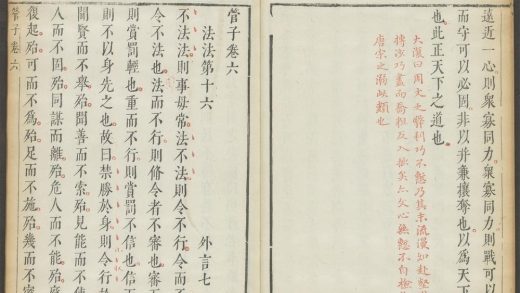 遠近一心則衆寡同力衆寡同力則戰可以
而守可以必固非以并兼攘奪也以爲天下
也此正天下之道也
大漠曰周文之弊利巧不慙乃其末流漫知赴壑
轉巧盡而入拙矣文心無慙不自檢
唐宗之瀕此類也
管子卷六
法法第十六 外言七
不法法則事毋常法不法則令不行令而不
令不法也法而不行則脩令者不審也審
則賞罰輕也重而不行則賞罰不信也信
則不以身先之也故曰禁勝於身則令行於
聞賢而不舉殆聞善而不索殆見能而不使
人而不固殆同謀而離殆危人而不能殆廢
復起殆可而不爲殆足而不施殆幾而不密
管子卷六